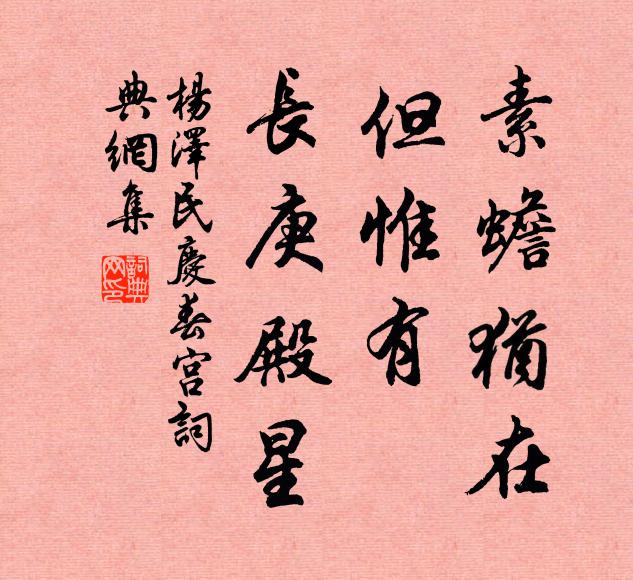 素蟾猶在
但惟有
長庚殿星
楊澤民慶春宮詞
典網集
詞典網印